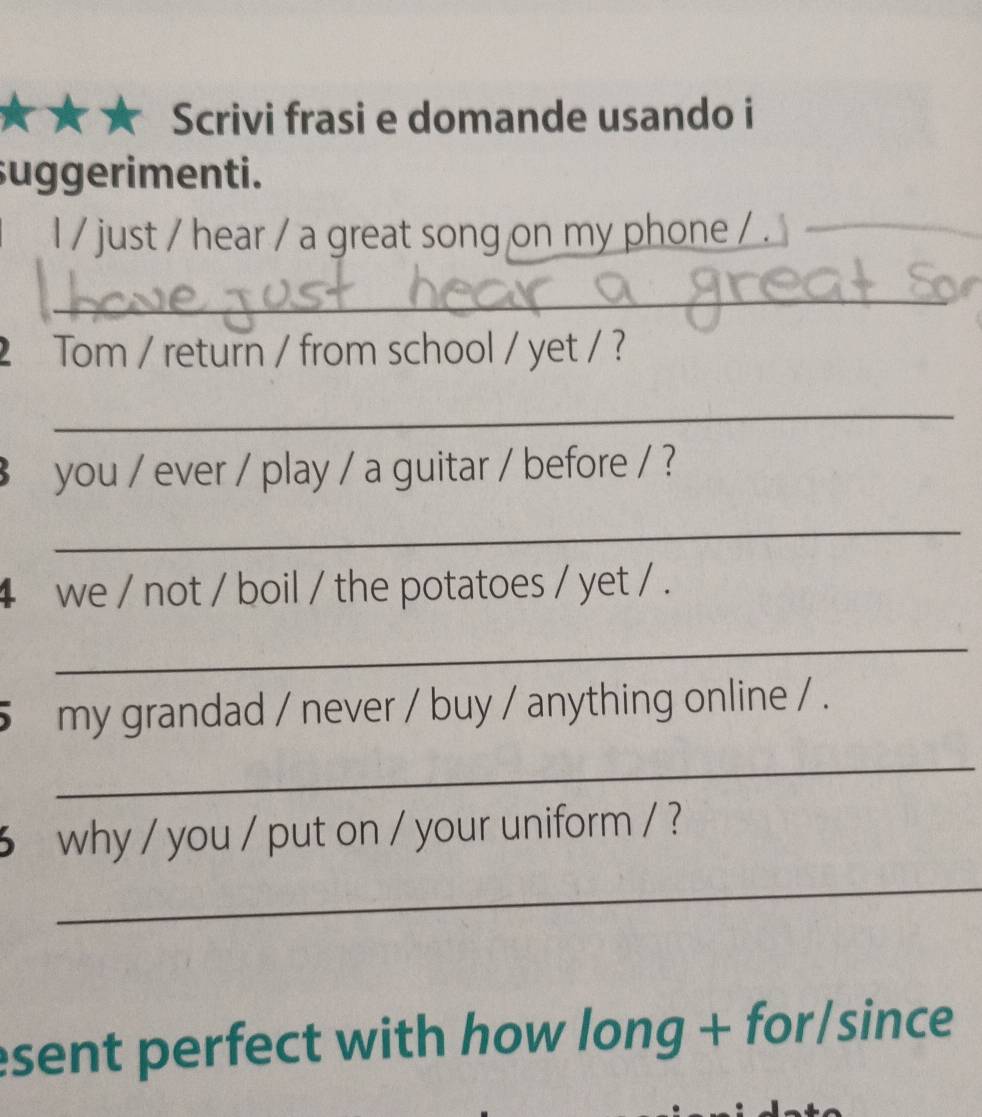 Scrivi frasi e domande usando i
suggerimenti.
I / just / hear / a great song on my phone / .
I have just hear a great
2 Tom / return / from school / yet / ?
3 you / ever / play / a guitar / before / ?
4 we / not / boil / the potatoes / yet / .
5 my grandad / never / buy / anything online / .
6 why / you / put on / your uniform / ?
esent perfect with how long + for/since